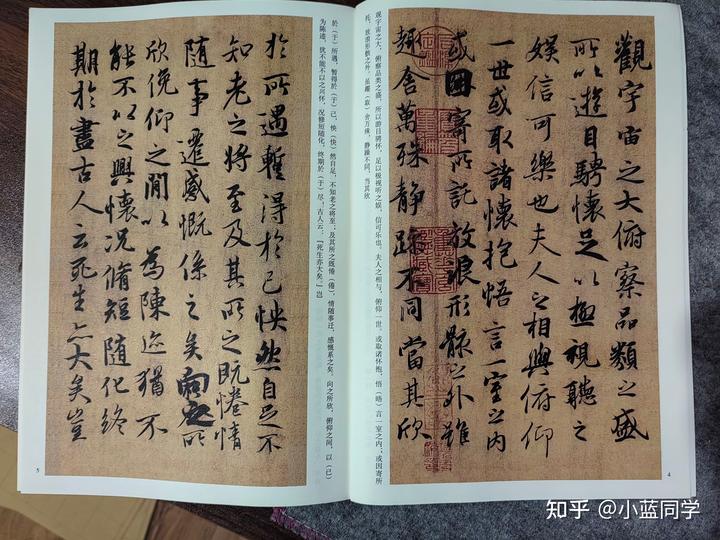 觀宇宙之大俯察品類之盛
所以遊目騁懷足以極視聽之
娛信可樂也夫人之相與俯仰
一世或取諸懷抱悟言一室之內
或因寄所託放浪形骸之外雖
趣舍萬殊靜躁不同當其欣
观宇宙之大，俯察品类之盛，所以游目骋怀，足以极视听之娱，信可乐也。夫人之相与，俯仰一世，或取诸怀抱，悟（晤）言一室之内；或因寄所
托，放浪形骸之外。虽趣（取）舍万殊，静躁不同，当其欣
4
於所遇暫得於己怏然自足不
知老之將至及其所之既惓情
隨事遷感慨係之矣向之所
欣俛仰之間以為陳迹猶不
能不以之興懷況脩短隨化終
期於盡古人云死生亦大矣豈
於（于）所遇，暂得於（于）己，怏（快）然自足，不知老之将至；及其所之既惓（倦），情随事迁，感慨系之矣。向之所欣，俯仰之间，以（已）
为陈迹，犹不能不以之兴怀，况修短随化，终期於（于）尽！古人云：「死生亦大矣。」岂
5
知乎 @小蓝同学